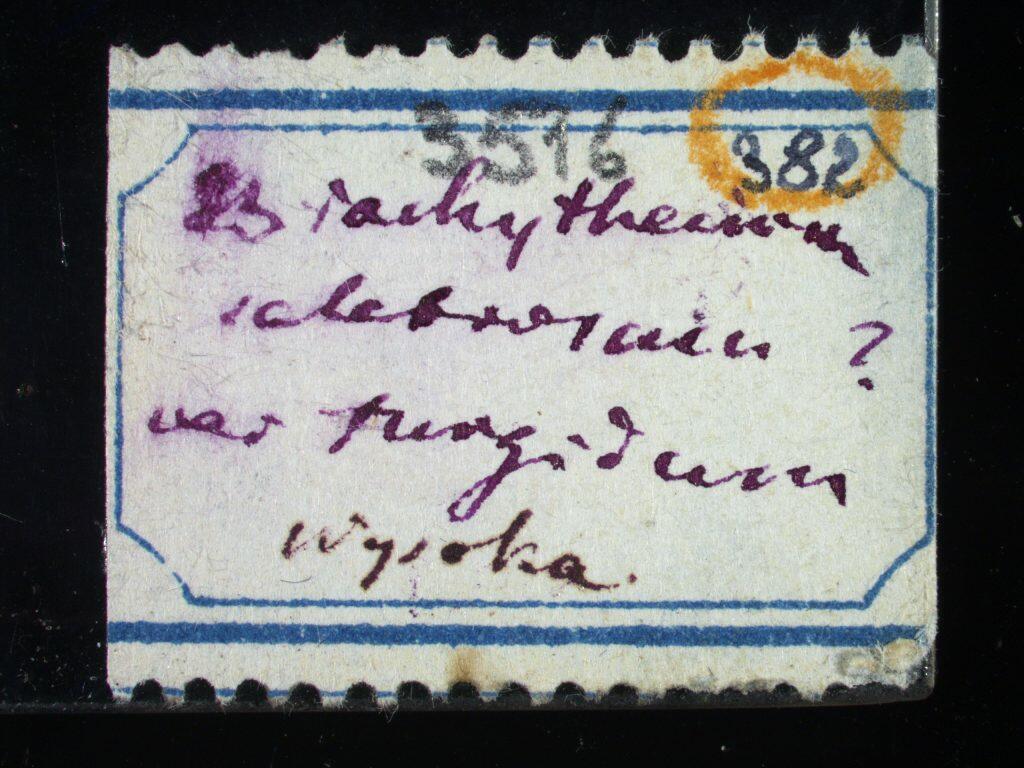 3516
382
Brachythecium
salebrosum ?
var turgidum
Wysoka.